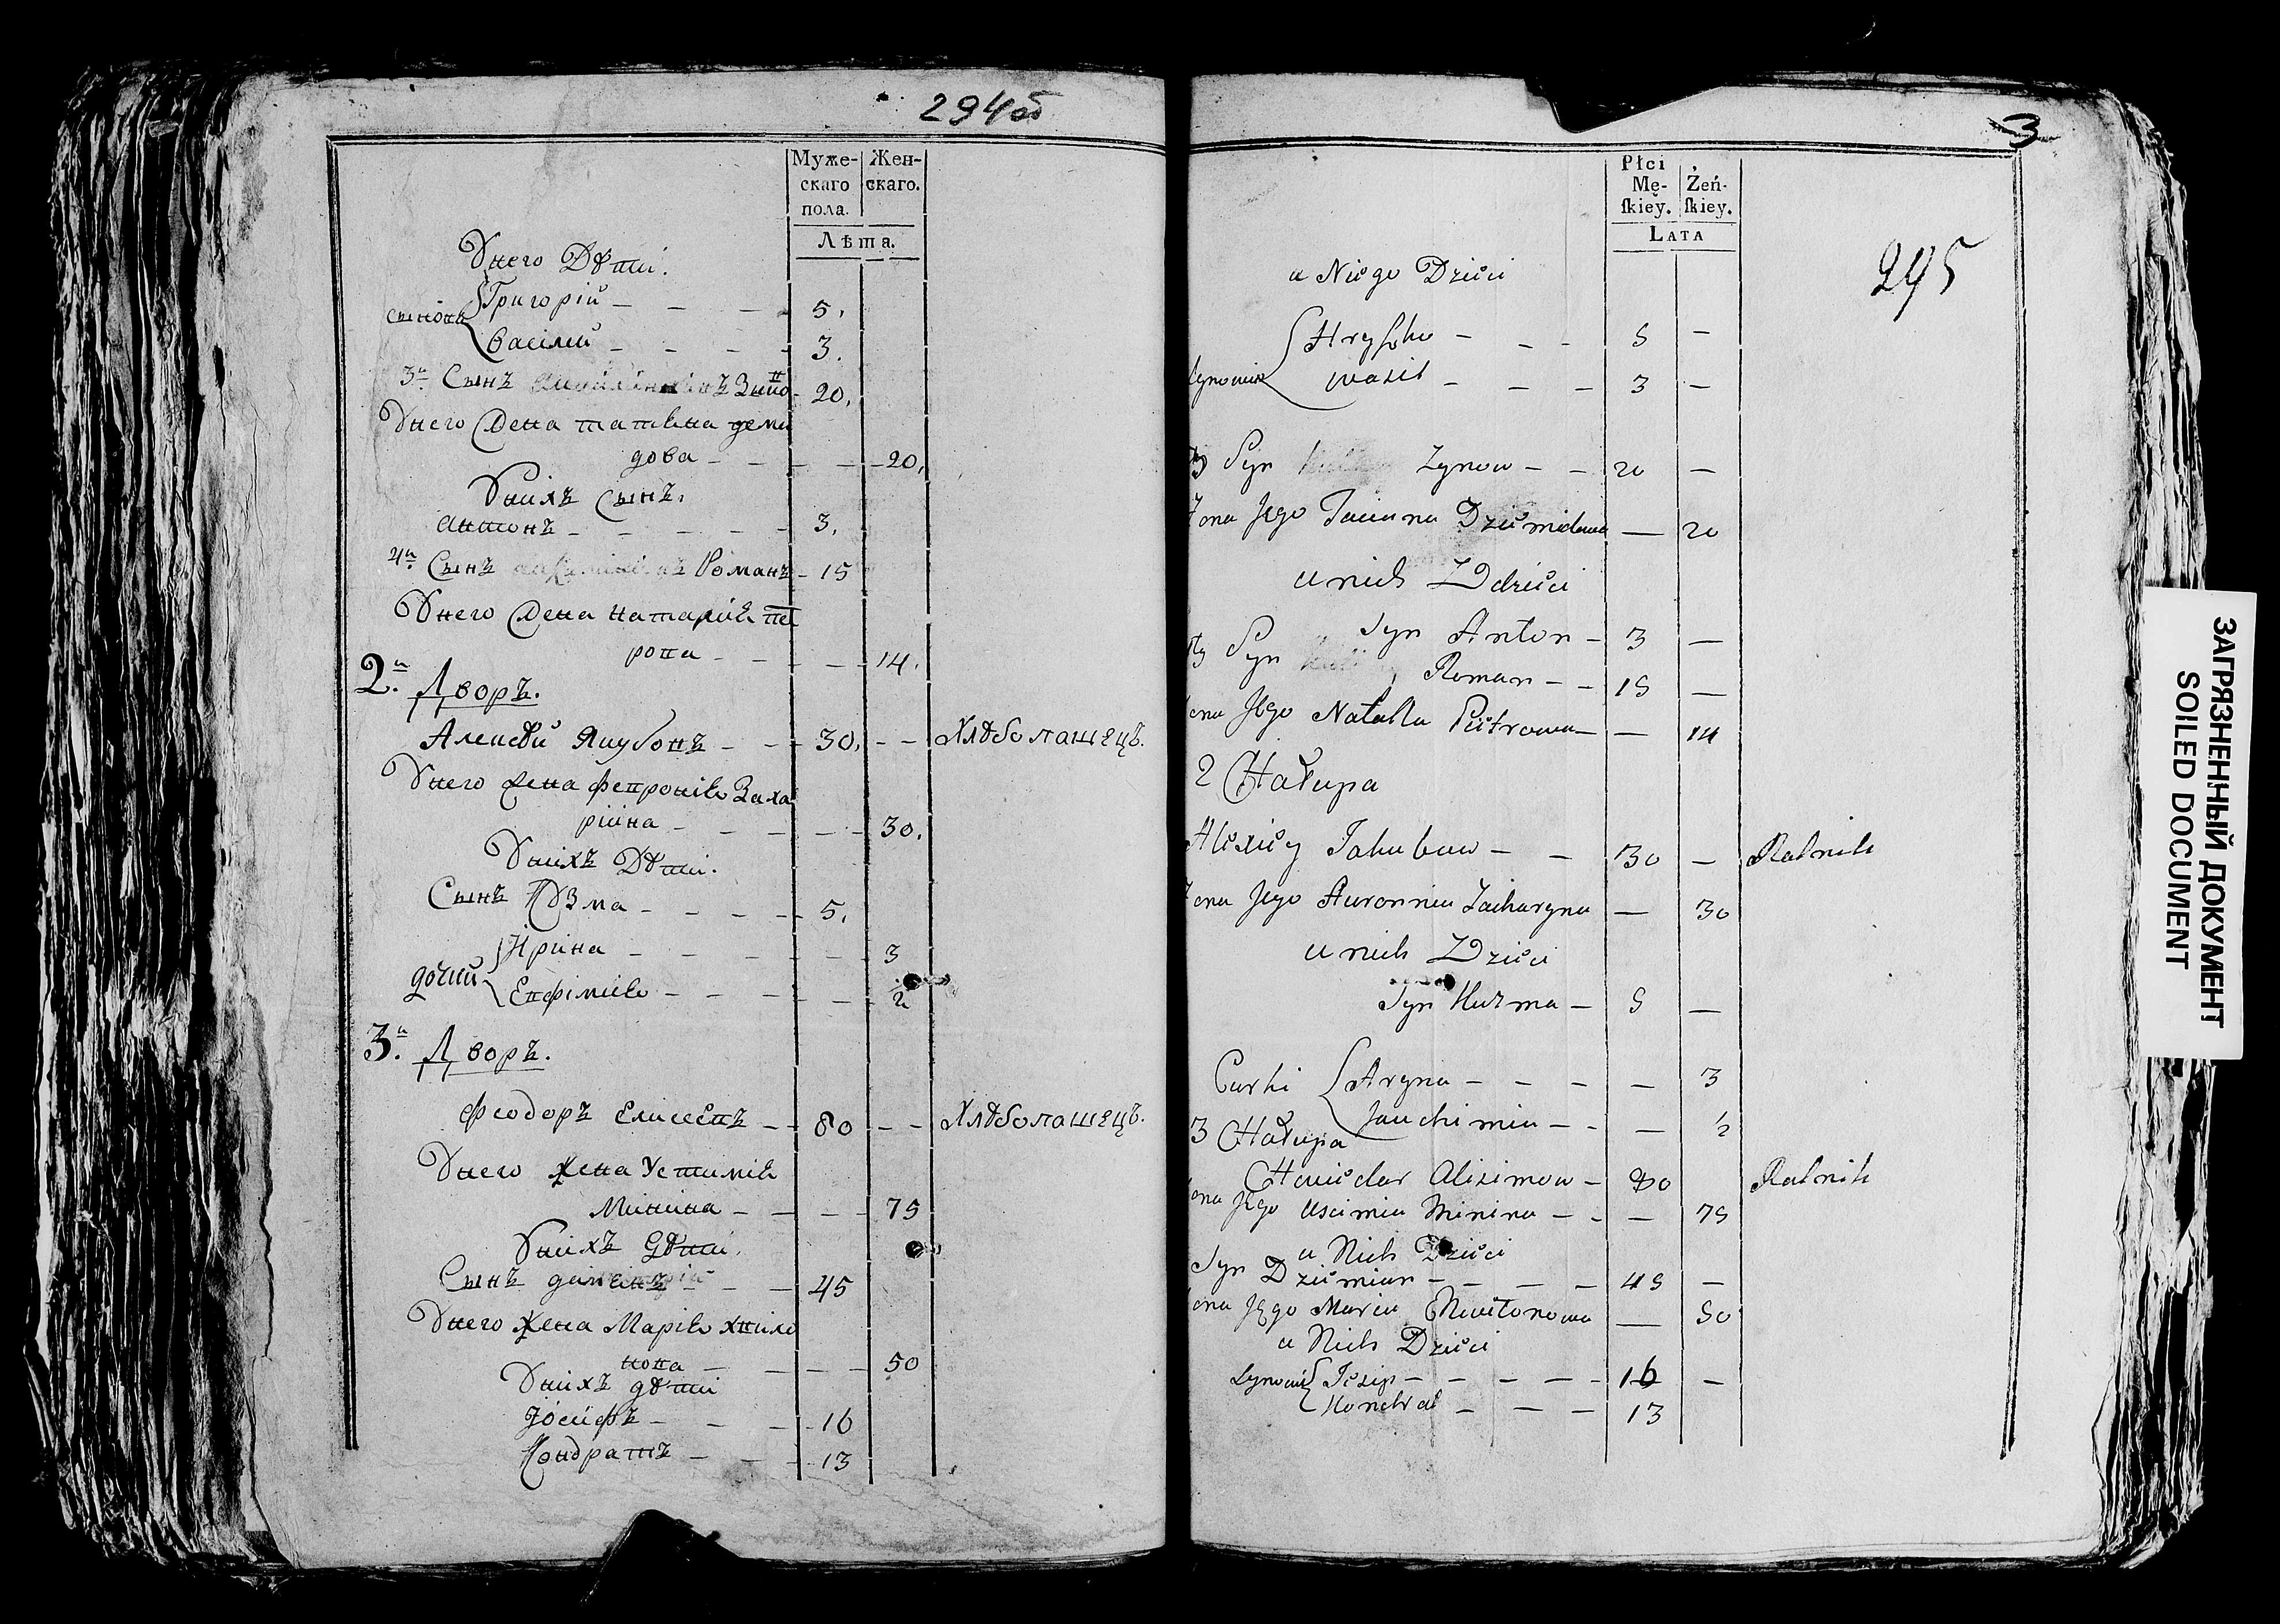 294об
Муже- Жен-
скаго скаго.
пола.
Лѣта.
Унего Дѣти.
Григорій — — — 5.
сыновя
Васілей — — — — 3.
3й Сынъ Зино 20.
Унего Жена татьяна деми
дова — — — — 20.
Унихъ Сынъ.
антонъ — — — — — 3.
4й Сынъ Романъ — 15
Унего Жена Наталія пет
рова — — — — 14.
2й Дворъ.
Алексѣй Якубовъ — — 30. — — Хлѣбопашецъ.
Унего жена февронія Заха
рійна — — — — — 30.
Унихъ Дѣти.
Сынъ КУЗма — — — — 5.
Ирина — — — — — 3
дочки
Евфімія — — — — — ½
3й Дворъ.
Феодоръ Елисеевъ — — 80 — — Хлѣбопашецъ.
Унего жена Устимія
Минина — — — — 75
Унихъ Дѣти.
Сынъ — — 45
Унего Жена Марія хвило
нова — — — 50
Унихъ дѣти
Іосифъ — — — 16
Кондратъ — — — 13
3
Płci
Mę- Żeń-
ſkiey. ſkiey.
LATA
295
u Niego Dzieci
Hryſhko — — — 5 —
synowie
wasil — — — 3 —
Syn Zynow — — 20 —
Zona Jego Taciana Dziemidowa — 20
u nich Dzieci
Syn Anton — 3 —
Syn Roman — — 15 —
ona Jego Natalla Pietrowa — — 14
2 Chałupa
Alexiey Jakubow — — 30 — Rolnik
Zona Jego Auronnia Zacharyna — 30
u nich Dzieci
Syn Kuzma — 5 —
Curki Aryna — — — — 3
Jauchimia — — — ½
3 Chałupa
Chwiedor Alisieiow — 80 Rolnik
ona Jego Uscimia Minina — — — 75
u Nich Dzieci
Syn Dziemian — — — — 45 —
ona Jego Maria Chwiłonowa — 50
u Nich Dzieci
Synowie Jozip — — — — — 16 —
Kondrat — — — 13
ЗАГРЯЗНЕННЫЙ ДОКУМЕНТ
SOILED DOCUMENT